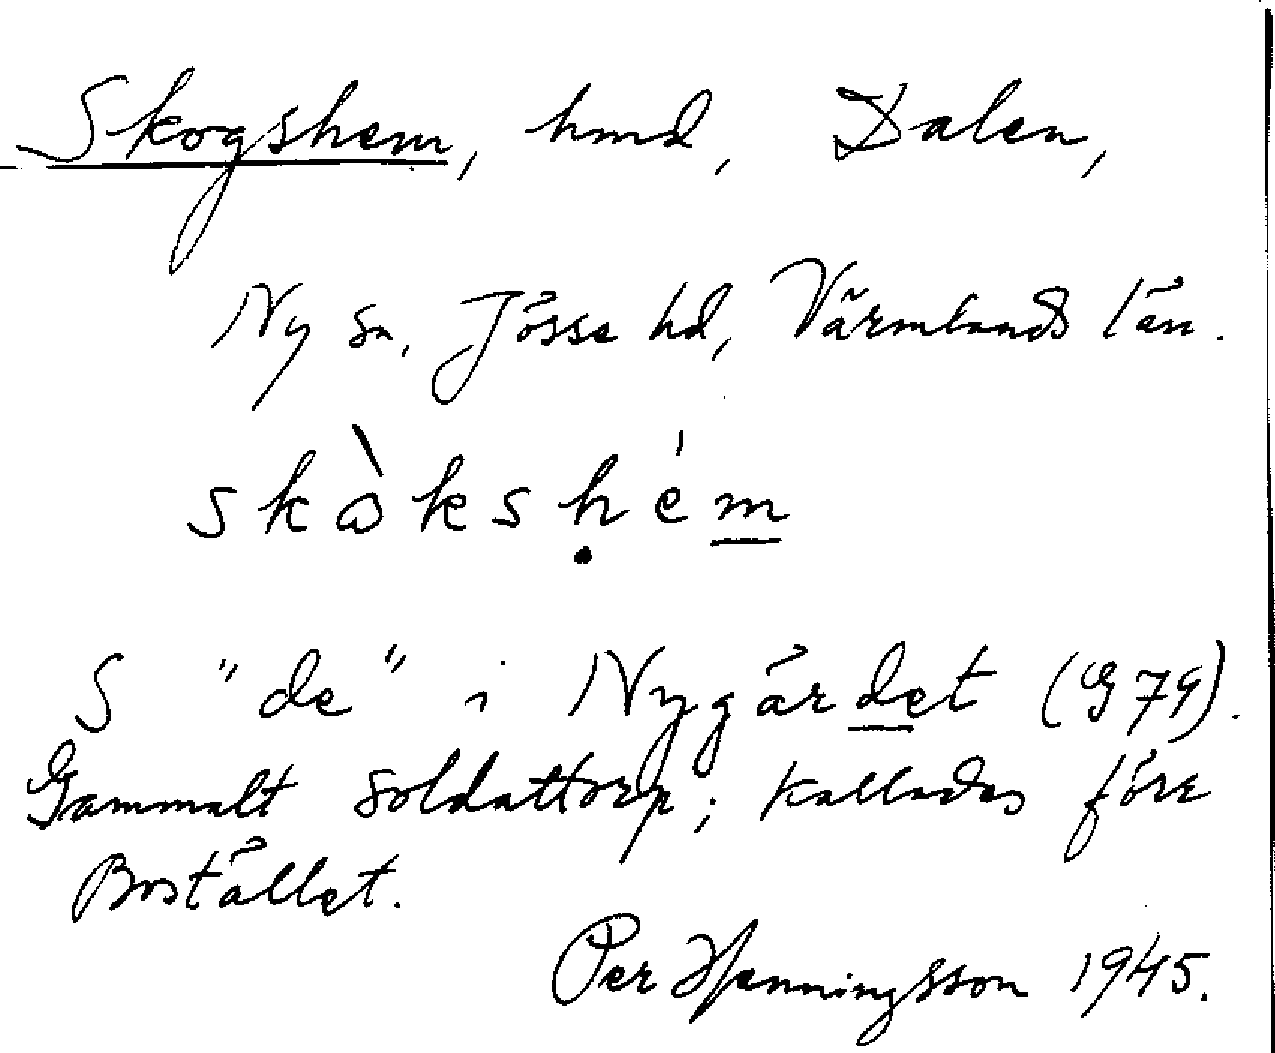 Skogshem, hmd, Dalen,
Ny sn, Jösse hd, Värmlands län.
skòkshém
S "de" i Nygårdet (G 79).
Gammalt soldattorp; kallades förr
Bostället.
Per Henningsson 1945.